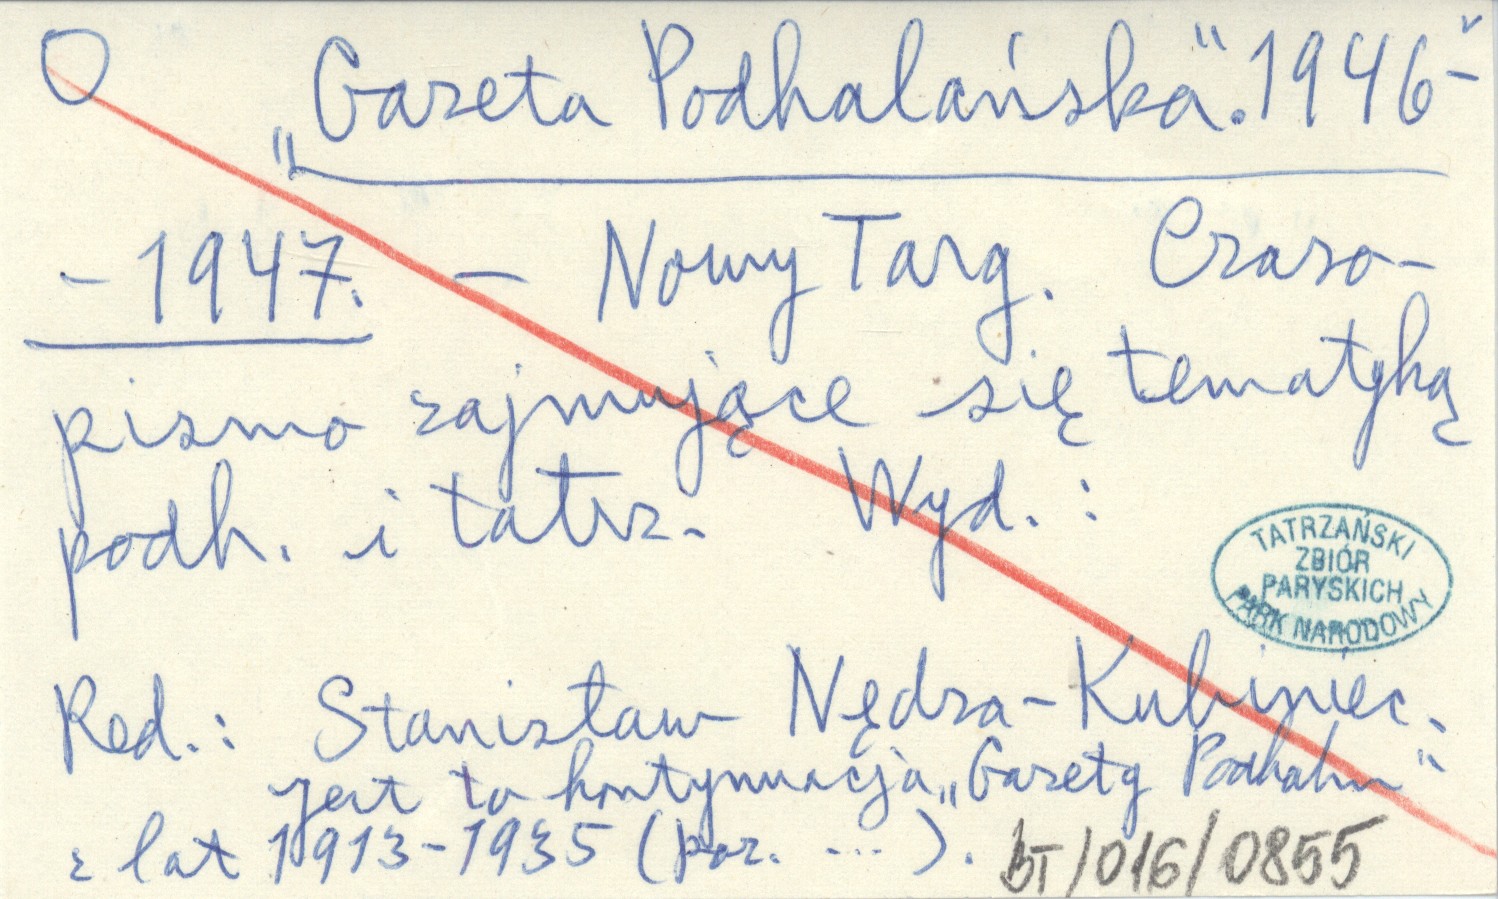 „Gazeta Podhalańska”. 1946-
- 1947. - Nowy Targ. Czaso-
pismo zajmujące się tematyką
podh. i tatrz. Wyd.:
TATRZAŃSKI
ZBIÓR
PARYSKICH
PARK NARODOWY
Red.: Stanisław Nędza-Kubiniec.
jest to kontynuacja „Gazety Podhalań”
z lat 1913-1935 (por. ...).
BT/016/0855